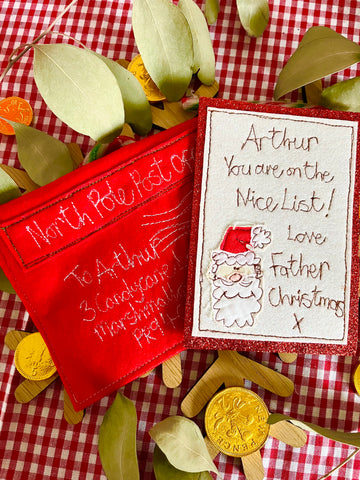 North Pole Post
To Arthur
3 Candycane
Marshma
Arthur
You are on the
Nice List!
Love
Father
Christmas
X